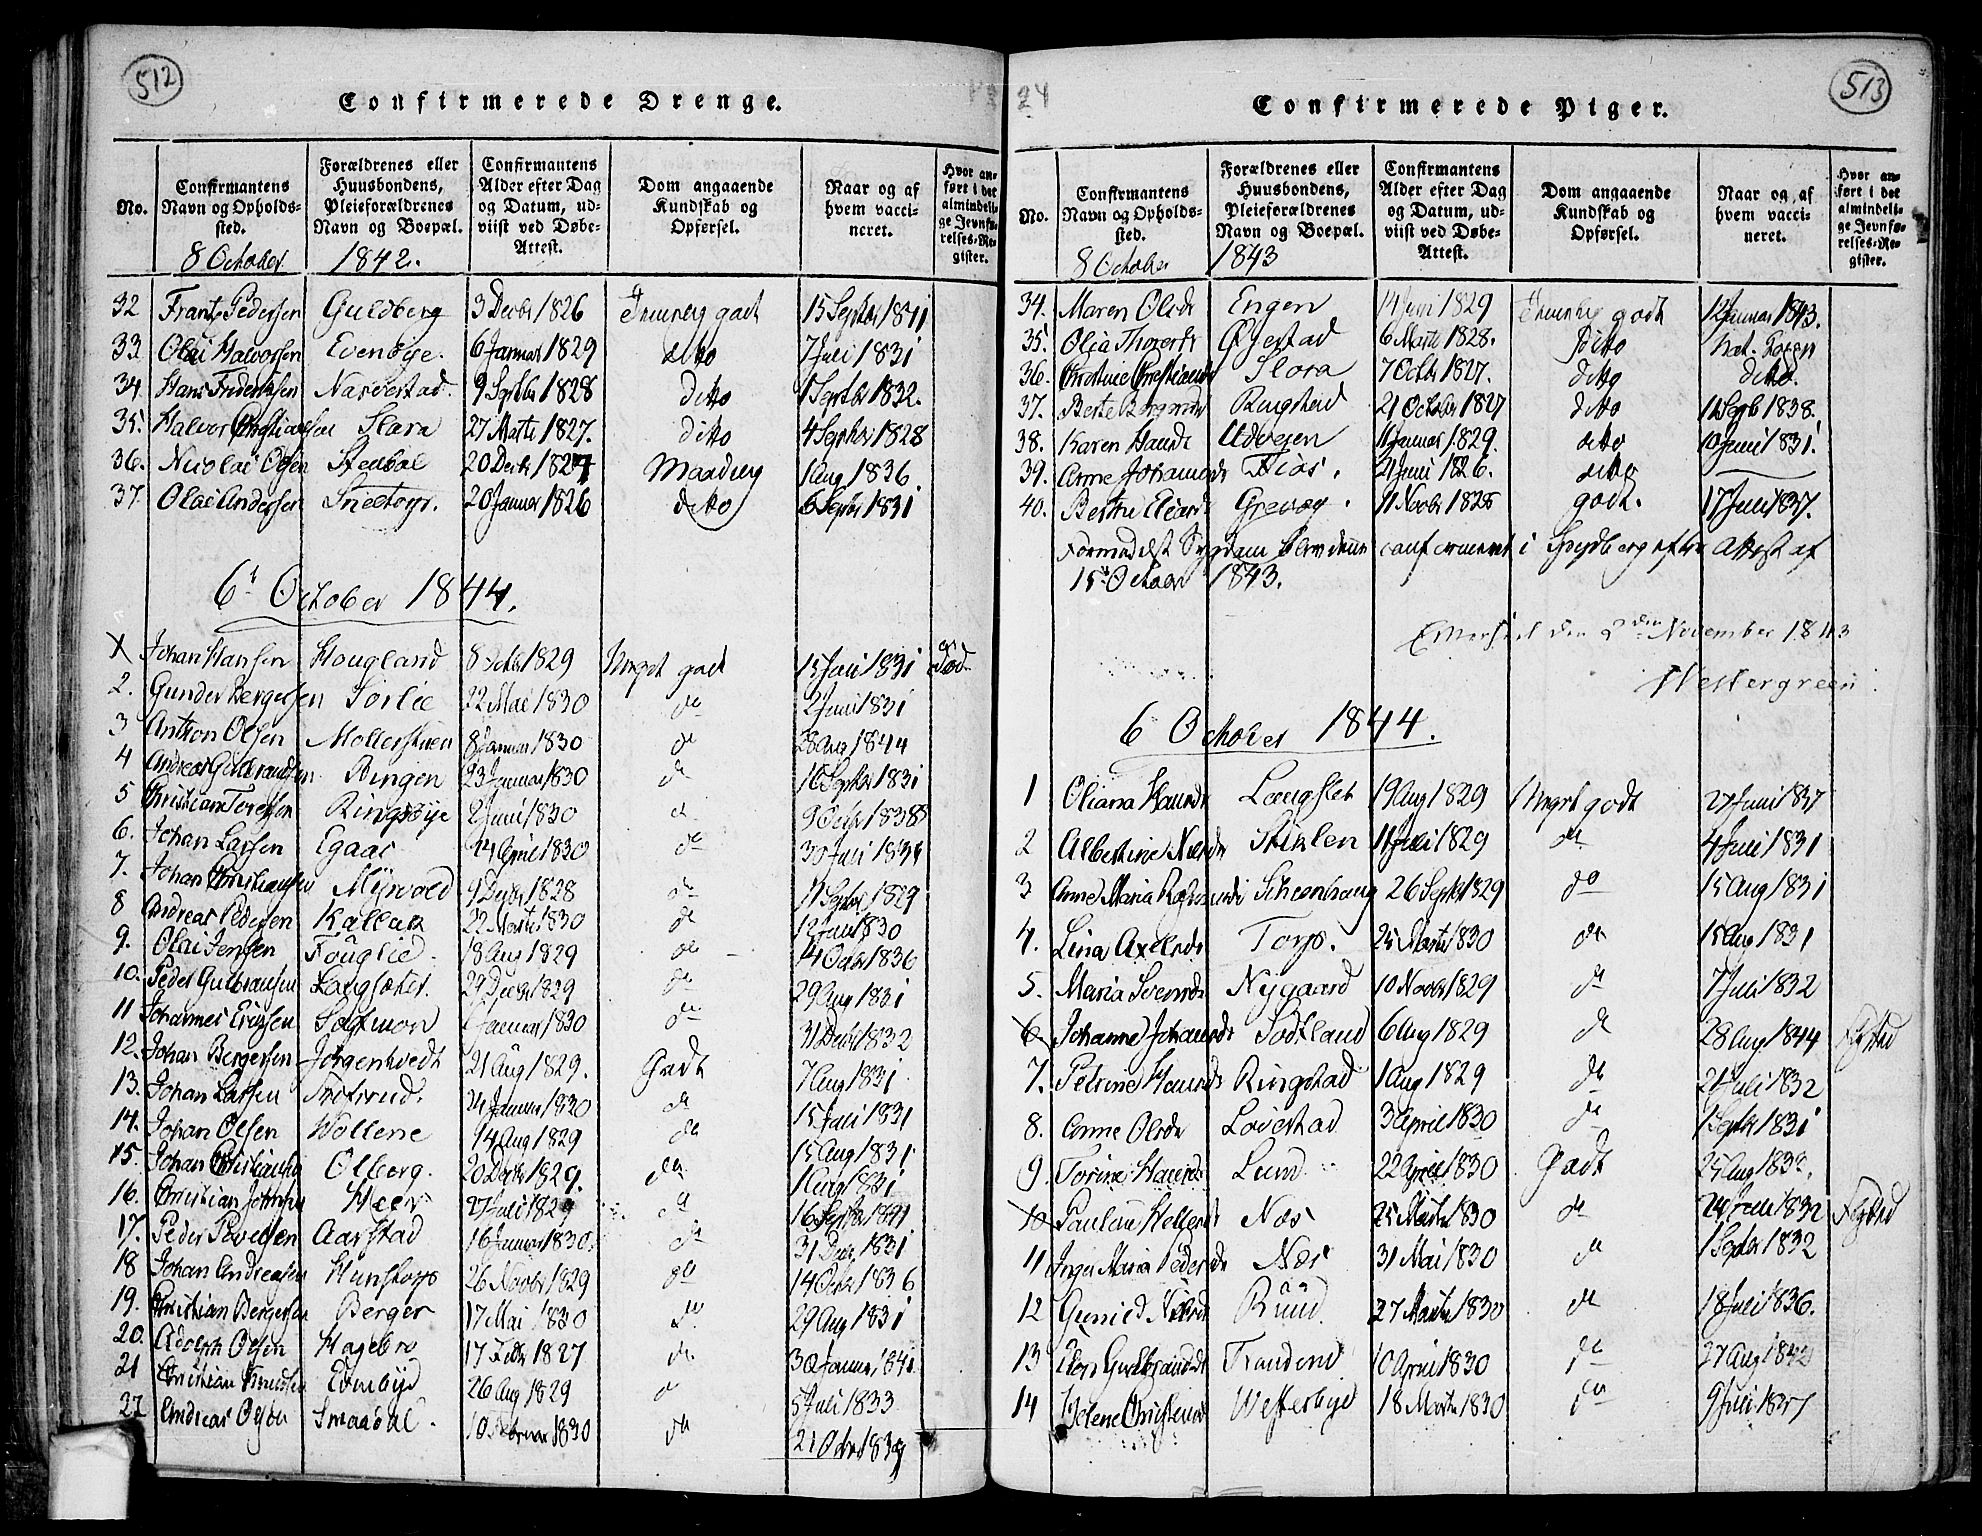 512
Confirmerede Drenge.
No.
Confirmantens Navn og Opholds-sted.
Forældrenes eller Huusbondens, Pleieforældrenes Navn og Boepæl.
Confirmantens Alder efter Dag og Datum, ud-viist ved Døbe-Attest.
Dom angaaende Kundskab og Opførsel.
Naar og af hvem vacci-neret.
Hvor an-ført i det almindeli-ge Jevnfø-relses-Re-gister.
8 October 1842.
32 Frants Pedersen Guldberg 3 Decbr 1826 godt 15 Septbr 1841
33. Olai Halvorsen Evenbye. 6 Januar 1829 ditto 7 Juli 1831
34. Hans Fredericksen Narvestad. 9 Septbr 1828 ditto 1 Septbr 1832.
35. Halvor Christiansen Slora 27 Marts 1827. ditto 4 Septbr 1828
36. Nicolai Olsen Stenbøl 20 Decbr 1827 Maadelig 1 Aug 1836.
37. Olai Andersen 20 Januar 1826 ditto 6 Septbr 1831
6t October 1844.
1 Johan Hansen Hougland 8 Octbr 1829 Meget godt 15 Juli 1831
2. Gunder Bergersen Sørlie 22 Mai 1830 do 2 Juni 1831
3 Anthon Olsen Møllerstuen 8 Januar 1830 do 28 Aug 1844
4 Andreas Gulbrandsen Bingen 23 Januar 1830 do 16 Septbr 1831
5 Christian Ringsbye 2 Juni 1830 do 9 Octbr 1838
6. Johan Larsen Egaas 14 April 1830 do 30 Juli 1831
7. Johan Christiansen Myrvold 9 Decbr 1828 do 11 Septbr 1829
8 Andreas Pedersen Kallak 22 Marts 1830 do 12 Juli 1830
9. Olai Jensen Fouglie. 18 Aug 1829 do 14 Octbr 1836
10. Peder Gulbransen Langsæter. 29 Decbr 1829 do 29 Aug 1831
11 Johannes Ericksen Januar 1830 do 31 Decbr 1832
12. Johan Bergersen Jørgentvedt 21 Aug 1829. Godt 7 Aug 1831
13. Johan Larsen 24 Januar 1830 do 15 Juli 1831
14. Johan Olsen Wollene 14 Aug 1829 do 15 Aug 1831
15. Johan Christiansen Olberg. 20 Decbr 1829. do 1 Aug 1831
16. Christian Johnsen Heer 27 Juli 1829 do 16 Septbr
17. Peder Povelsen Aarstad 16 Januar 1830. do 31 Decbr 1831
18 Johan Andreasen Hunstorp 26 Novbr 1829 do 14 Octbr 1836
19. Christian Bergersen Berger 17 Mai 1830 do 29 Aug 1831
20. Adolph Olsen Hagebro 17 Febr 1827 do 30 Januar 1841
21 Christian Knudsen Evenbye 26 Aug 1829 do 5 Juli 1833
22 Andreas Olsen Smaadal. 10 Februar 1830 do 21 Octbr
513
Confirmerede Piger.
No.
Confirmantens Navn og Opholds-sted.
Forældrenes eller Huusbondens, Pleieforældrenes Navn og Boepæl.
Confirmantens Alder efter Dag og Datum, ud-viist ved Døbe-Attest.
Dom angaaende Kundskab og Opførsel.
Naar og af hvem vacci-neret.
Hvor an-ført i det almindeli-ge Jevnfø-relses-Re-gister.
8 October 1843
34. Maren Olsdr Engen 14 Juni 1829 godt 12 Januar 1843.
35. Olia Thorersdr Øgestad 6 Marts 1828. ditto
36. Christine Christiansdr Slora 7 Octbr 1827. ditto ditto.
37. Berte Ringstad 21 October 1827 ditto 11 Septb 1838.
38. Karen Hansdr Udvejen 11 Januar 1829. ditto 10 Juni 1831.
39. Anne Johannesdr Næs. 21 Juni 1826. ditto
40. Berthe Grevog. 11 Novbr 1828 godt. 17 Juni 1837.
Formedelst Sygdom blev denne confirmeret i Spydberg efter Attest af
15de October 1843.
Efterseet den 2den November 1843
Westergreen
6 October 1844.
1 Oliana Hansdr Langslet 19 Aug 1829 Meget godt 27 Juni 1837
2 Albertine Nielsdr Stiklen 11 Juli 1829 do 4 Juli 1831
3 Anne Maria 26 Septbr 1829 do 15 Aug 1831
4. Lina Axelsdr Torp. 25 Marts 1830 do 15 Aug 1831
5. Maria Svensdr Nygaard 10 Novbr 1829 do 7 Juli 1832
6 Johanne Johansdr 6 Aug 1829 do 28 Aug 1844
7. Petrine Hansdr Ringstad 1 Aug 1829 do 21 Juli 1832
8. Anne Olsdr Løvestad 3 April 1830 do 1 Septbr 1831
9. Torine Hansdr Lund 22 April 1830 Godt
10 Næs 25 Marts 1830 do 24 Juli 1832
11 Inger Maria Pedersdr Næs 31 Mai 1830 do 1 Septbr 1832
12 Gunild Ruud. 27 Marts 1830 do 18 Juli 1836.
13 Gulbrandsdr 10 April 1830 do 27 Aug 1842
14 Helene Christiansdr Westerbye 18 Marts 1830 do 9 Juli 1837